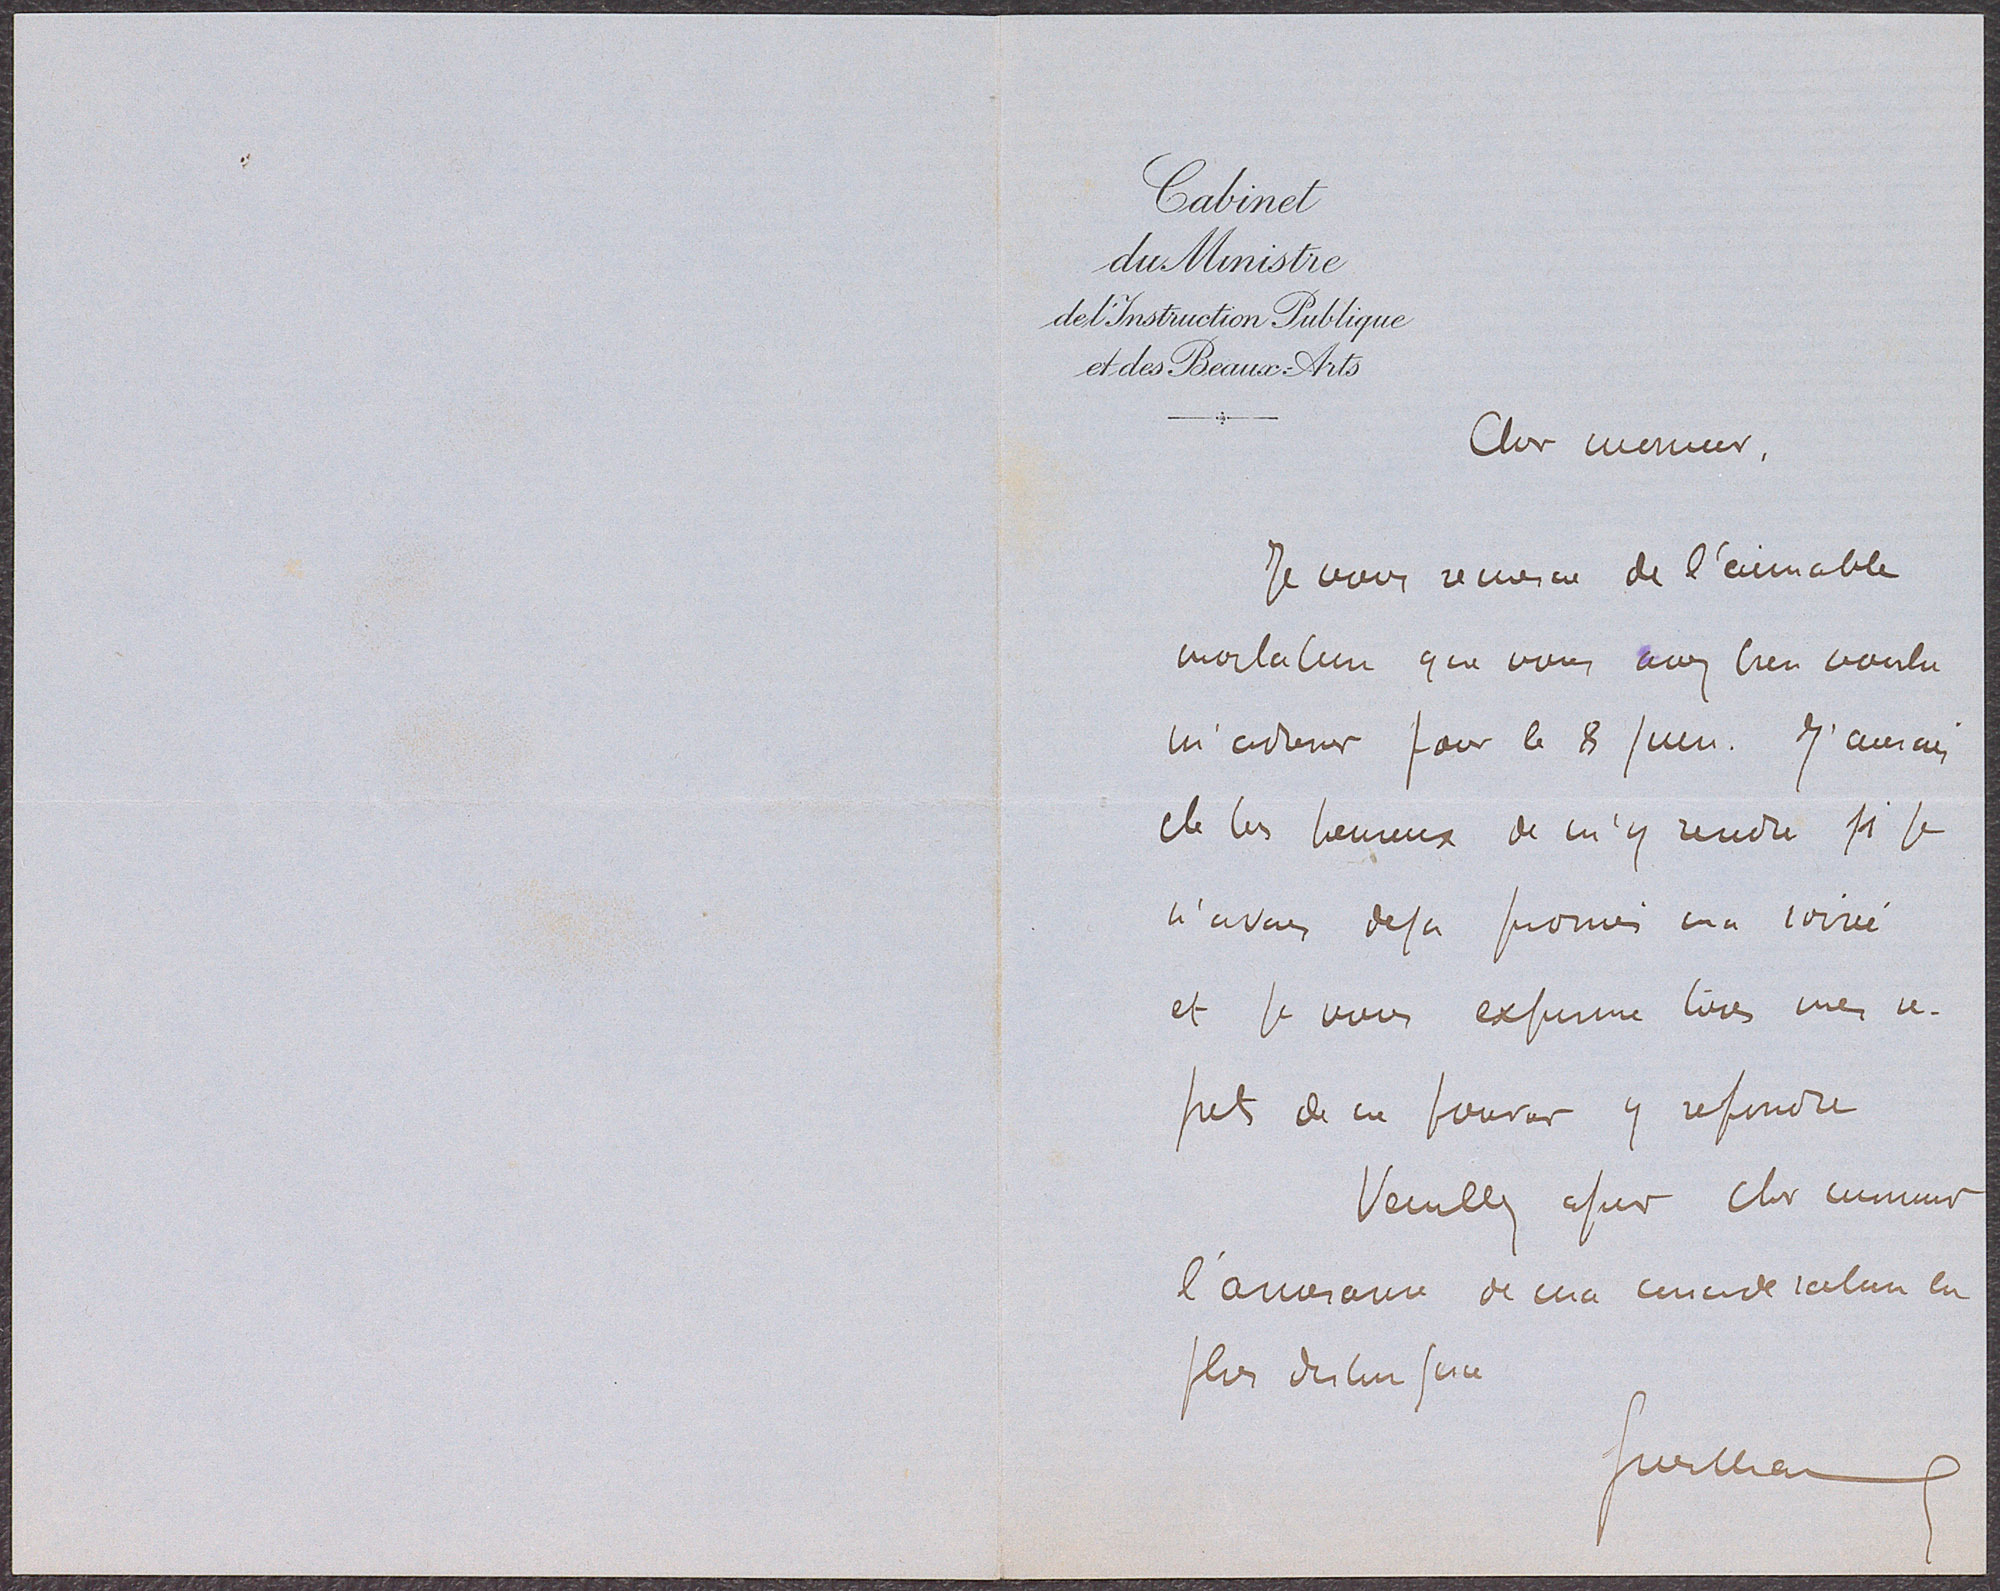 Cabinet
du Ministre
de l'Instruction Publique
et des Beaux-Arts
Cher monsieur,
Je vous remercie de l'aimable
invitation que vous avez bien voulu
m'adresser pour le 8 juin. J'aurais
été très heureux de m'y rendre si je
n'avais deja promis ma soirée
et je vous exprime tous mes re-
grets de ne pouvoir y repondre
Veuillez agreer cher monsieur
l'assurance de ma consideration la
plus distinguee